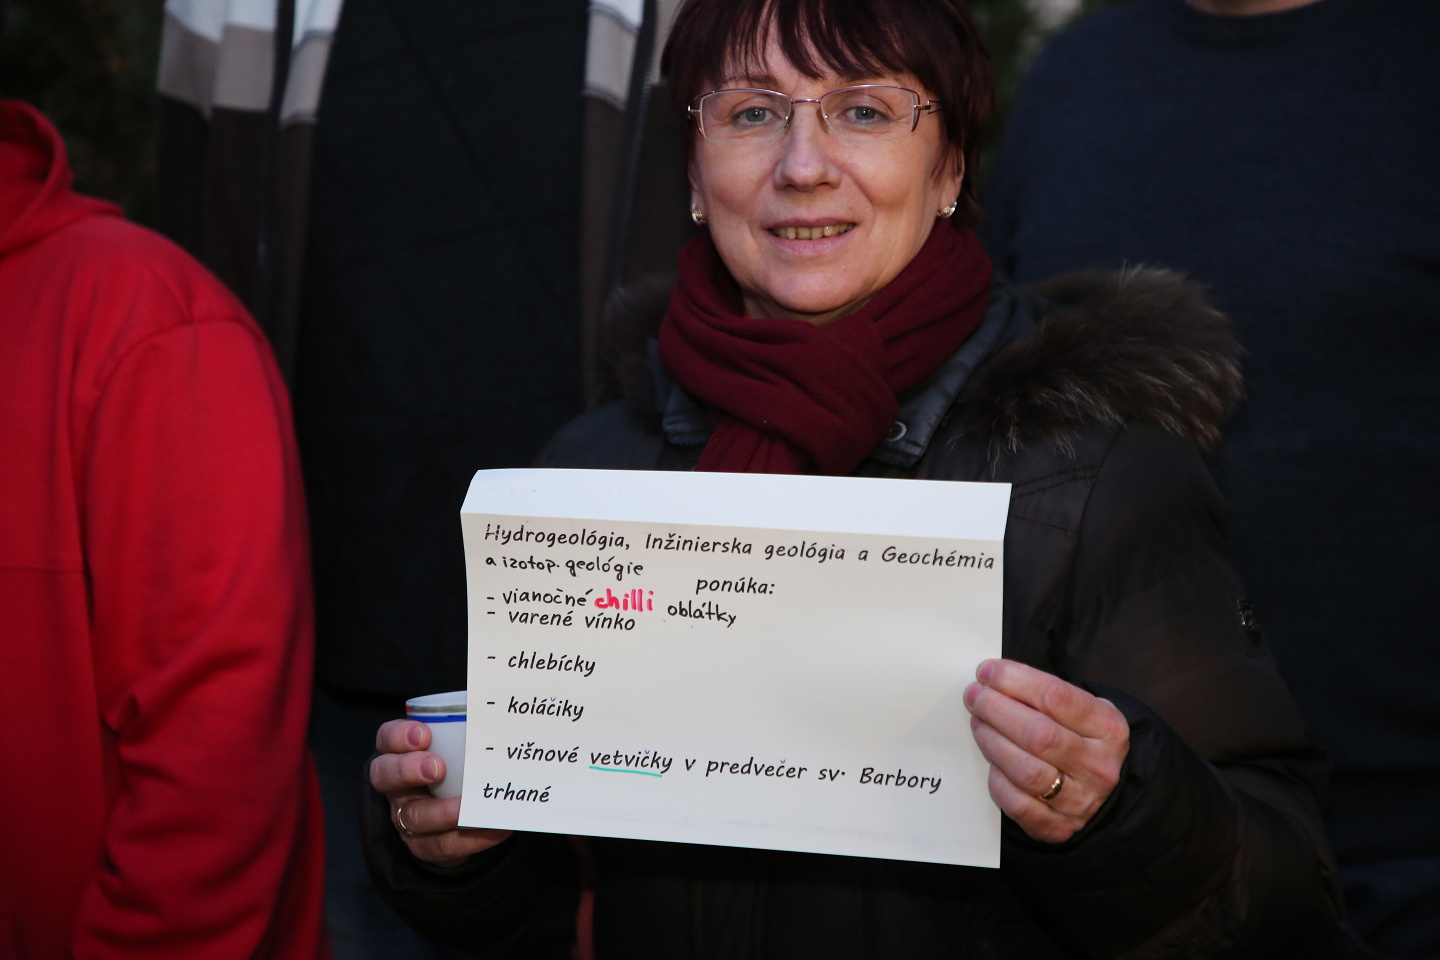 Hydrogeológia, Inžinierska geológia a Geochémia
a izotop. geológie
ponúka:
- vianočné chilli oblátky
- varené vínko
- chlebícky
- koláčiky
- višnové vetvičky v predvečer sv. Barbory
trhané